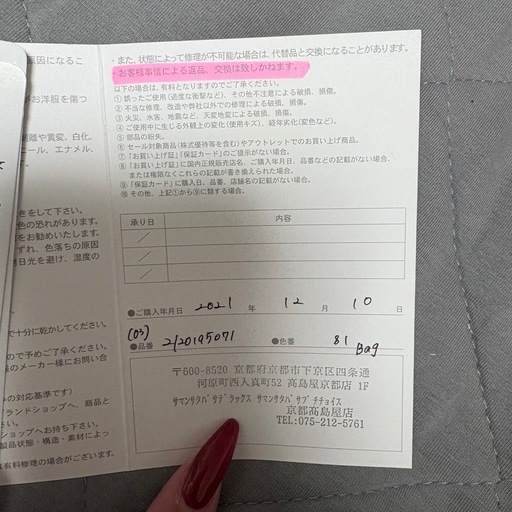 原因になるこ
お洋服を傷つ
や黄変、白化、
ール、エナメル、
きをして下さい。
色の恐れがあります。
をお勧めいたします。
ずれ、色落ちの原因
日光を避け、湿度の
で十分に乾かしてください。
ので予めご了承ください。
のメーカー様にお問い合
の対応基準です)
ランドショップへ、商品と
さい。
ショップへお持ち下さい。
製品状態・構造・素材によっ
は有料修理の場合がございます。
・また、状態によって修理が不可能な場合は、代替品と交換になることがあります。
・お客様事情による返品、交換は致しかねます。
以下の場合は、有料となりますのでご了承ください。
①誤ったご使用(過度な衝撃など)、その他不注意による破損、損傷。
②不当な修理、改造や弊社以外での修理による破損、損傷。
③火災、水害、地震など、天変地変による破損、損傷。
④ご使用中に生じる外観上の変化(使用キズ)、経年劣化(変色など)。
⑤部品の紛失。
⑥セール対象商品(株式優待等を含む)やアウトレットでのお買い上げ商品。
⑦「お買い上げ証」「保証カード」のご提示がない場合。
⑧「お買い上げ証」に国内正規販売店名、ご購入年月日、品番などの記載がない場合、
または権限なくこれらの記載が書き換えられた場合。
⑨「保証カード」に購入日、品番、店舗名の記載がない場合。
⑩その他、上記①から⑨に類する場合。
承り日 内容
／
／
／
●ご購入年月日 2021 年 12 月 10 日
(03)
●品番 2120195071 ●色番 81
Bag
〒600-8520 京都府京都市下京区四条通
河原町西入真町52 高島屋京都店 1F
サマンサタバサデラックス サマンサタバサプチチョイス
京都高島屋店
TEL:075-212-5761